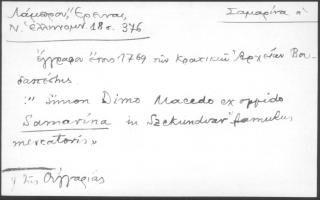 Λάμπρου, Ἔρευναι, Σαμαρίνα
Ν. Ἑλληνομν. 18 σ. 376
ἔγγραφον ἔτους 1769 τῶν Κρατικῶν Ἀρχείων Βου-
δαπέστης
:" Simon Dimo Macedo ex oppido
Samarina in Szekundvar famulus
mercatoris»
τῆς Οὑγγαρίας